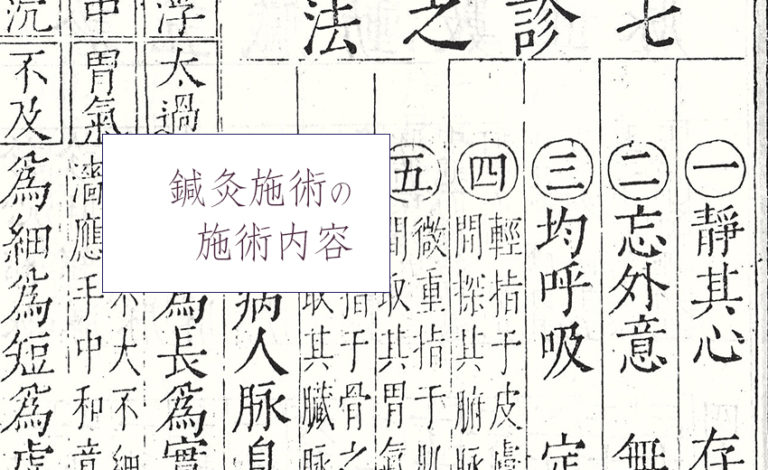 七診之法
㊀靜其心 存
㊁忘外意 無
㊂均呼吸 定
㊃輕指于皮膚
間探其腑脉
㊄微重指于肌
間取其胃氣
指于骨之
取其臟脉
病人脉息
浮
太過
為長為實
中
胃氣
不大不細
應手中和
沉
不及
為細為短為虛
鍼灸施術の
施術内容